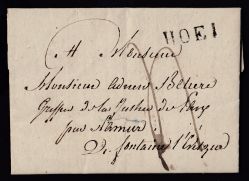 HOEI
A Monsieur
Monsieur Adrien
Greffier de la Justice de Paix
par Namur
De fontaine l'Evêque